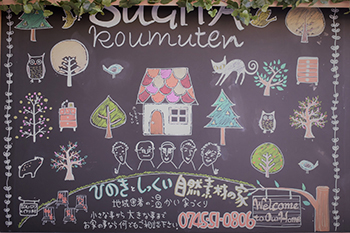 SUGITA
Koumuten
ひのきとしっくい 自然素材の家
地域密着の温かい家づくり
小さな事から大きな事まで
お家の事なら何でもご相談下さい♪
074551-0806
Welcome
to Our Home